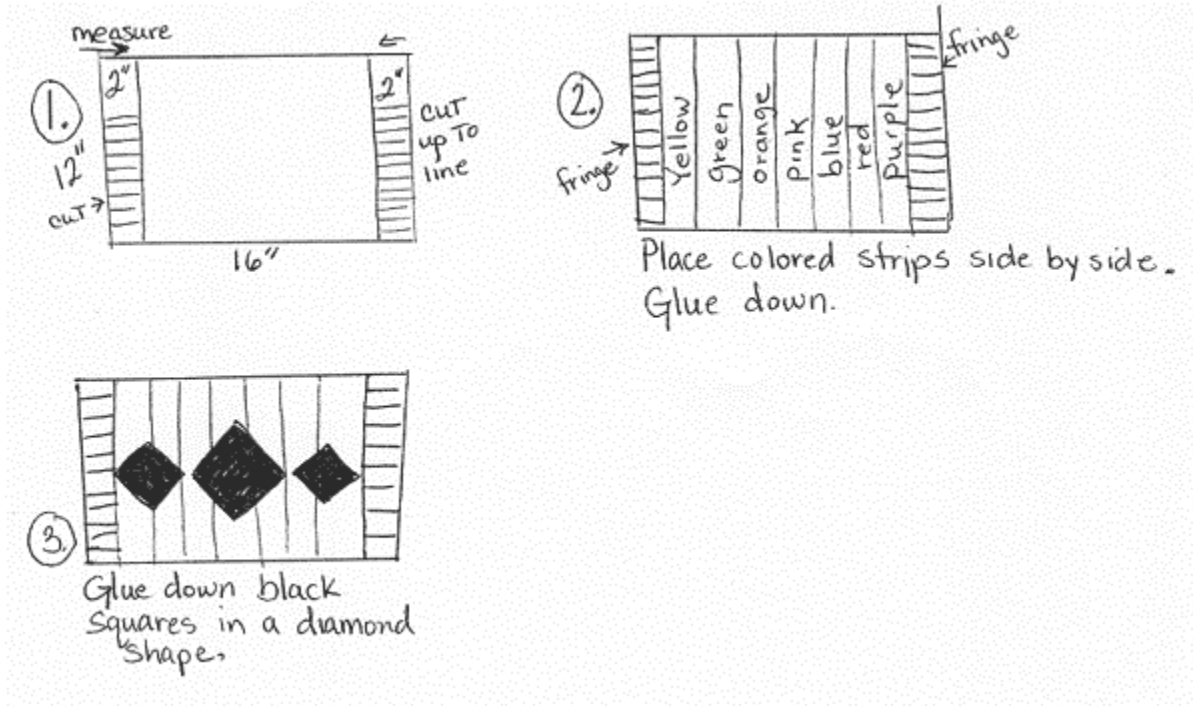 measure
1.
2"
2"
12"
cut
cut
up to
line
16"
2.
fringe
fringe
Yellow
green
orange
pink
blue
red
purple
Place colored strips side by side.
Glue down.
3.
Glue down black
squares in a diamond
shape.